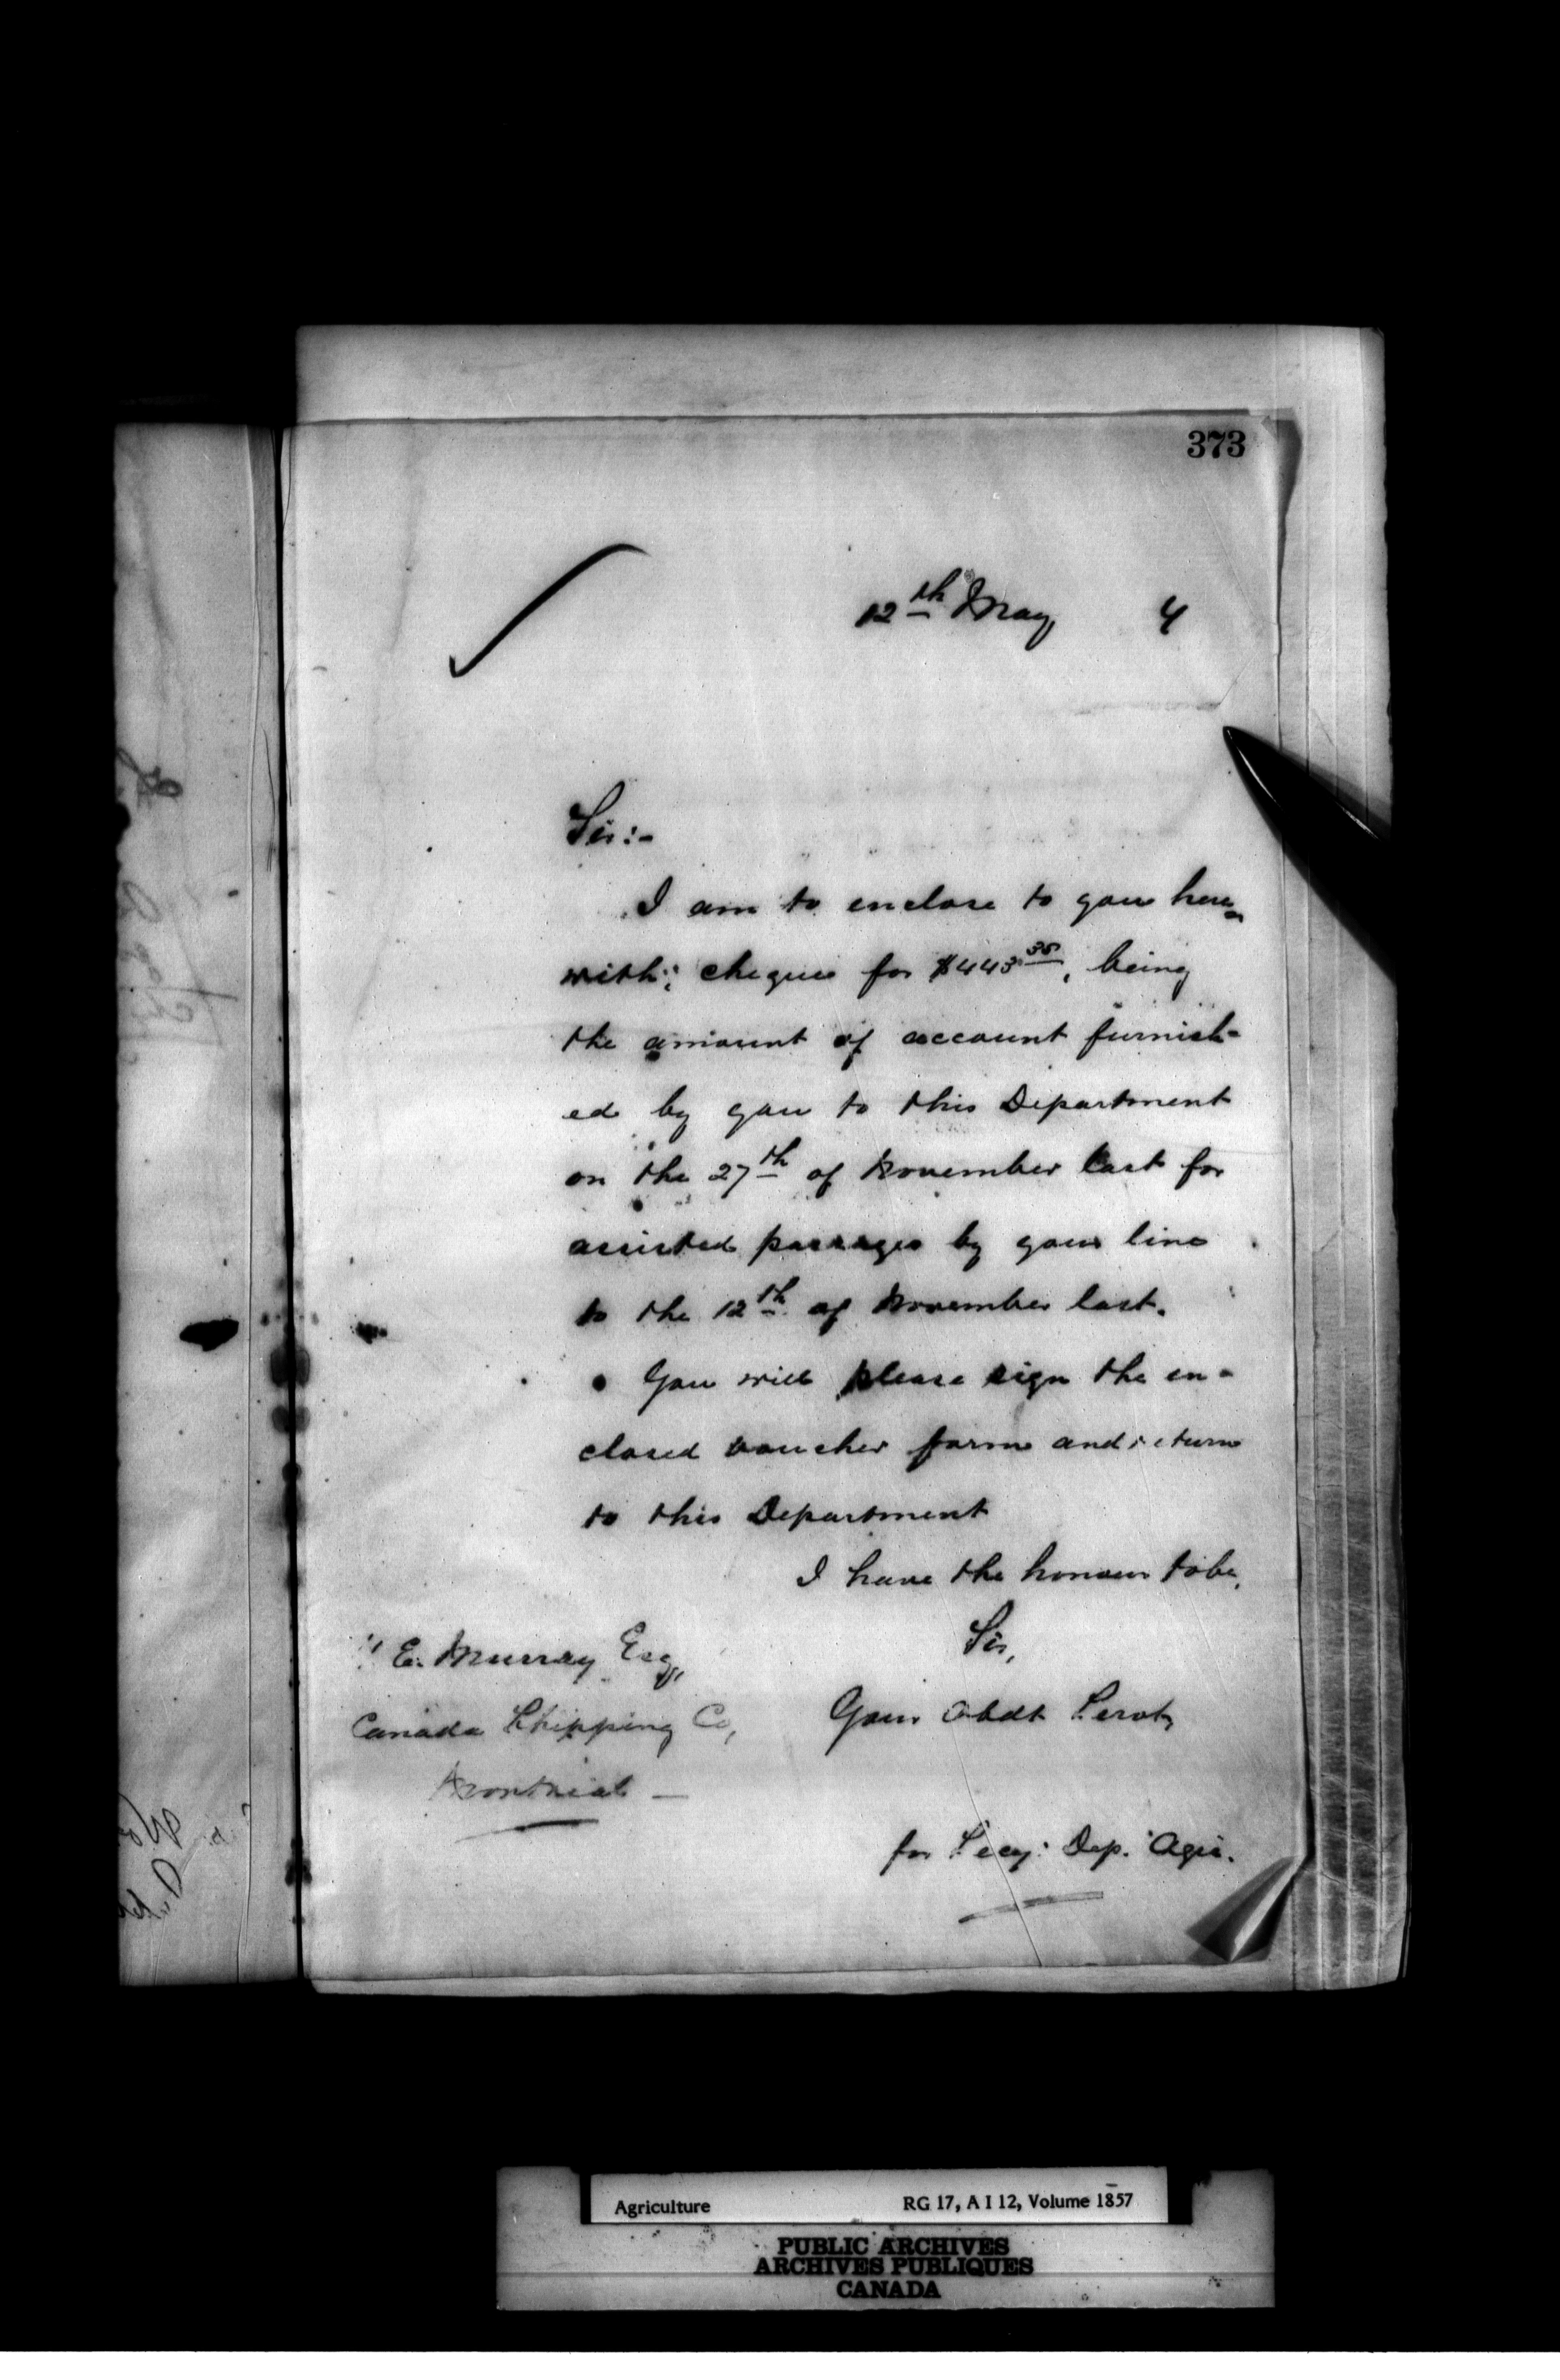 373
12th May 4
Sir:-
I am to enclose to you here
with; cheque for $443.35, being
the amount of account furnish-
ed by you to this Department
on the 27th of November last for
assisted passages by your line
to the 12th of November last.
You will please sign the en-
closed voucher form and return
to this Department
I have the honour to be,
Sir,
Your Obdt Servt,
E. Murray Esq,
Canada Shipping Co,
Montreal —
for Secy: Dep. Agri.
Agriculture RG 17, A I 12, Volume 1857
PUBLIC ARCHIVES
ARCHIVES PUBLIQUES
CANADA